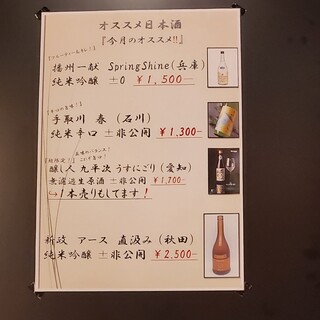 オススメ日本酒
『今月のオススメ!!』
播州一献 SpringShine(兵庫)
純米吟醸 ±0 ¥1,500-
手取川 春 (石川)
純米辛口 ±非公開 ¥1,300-
醸し人 九平次 うすにごり(愛知)
無濾過生原酒 ±非公開 ¥1,700-
↪1本売りもしてます!
新政 アース 直汲み(秋田)
純米吟醸 ±非公開 ¥2,500-